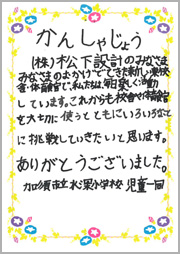 かんしゃじょう
(株)松下設計のみなさま
みなさまのおかげでできた新しい校
舎・体育館で、私たちは、毎日楽しく活動
しています。これからも校舎や体育館
を大切に使うとともにいろいろなこと
に挑戦していきたいと思います。
ありがとうございました。
加須市立水深小学校 児童一同